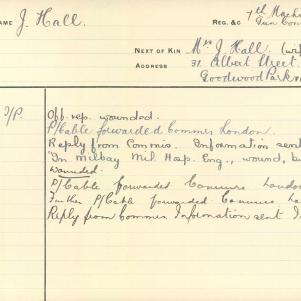 AME J. Hall.
REG. &c 7th Mach
Gun Com
NEXT OF KIN Mrs J Hall. (wi
ADDRESS 31 Albert Street.
Goodwood Park
/P. Off. rep. wounded.
P/Cable forwarded Commrs London.
Reply from Commis. Information sent
In Milbay Mil Hosp. Eng., wound, b
wounded.
P/Cable forwarded Commrs Londo
Further P/Cable forwarded Commrs L
Reply from Commr Information sent